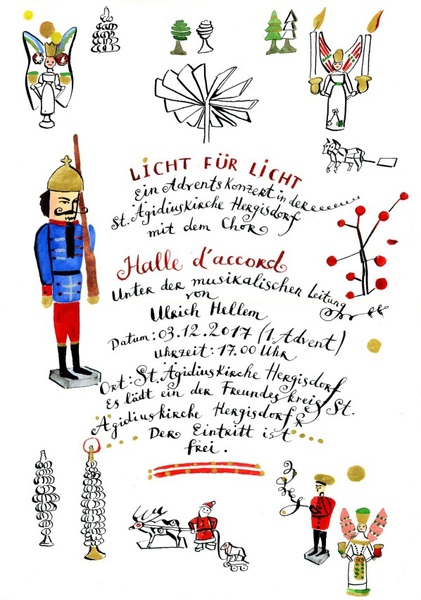 LICHT FÜR LICHT
Ein Adventskonzert in der
St. Ägidiuskirche Hergisdorf
mit dem Chor
Halle d'accord
Unter der musikalischen Leitung
von
Ulrich Hellem
Datum: 03.12.2017 (1. Advent)
Uhrzeit: 17.00 Uhr
Ort: St. Ägidius Kirche Hergisdorf
Es lädt ein der Freundeskreis St.
Ägidiuskirche Hergisdorf
Der Eintritt ist
frei.